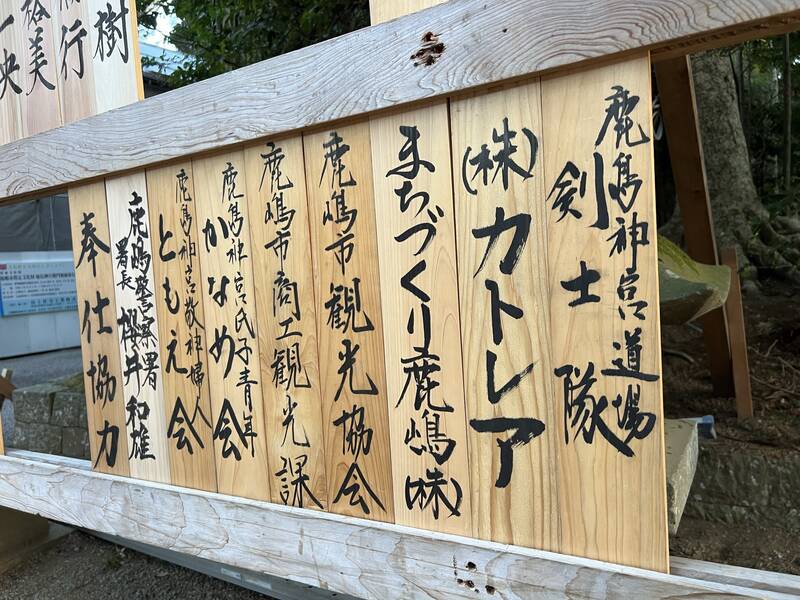 鹿島神宮道場
剣士隊
(株)カトレア
まちづくり鹿嶋(株)
鹿嶋市観光協会
鹿嶋市商工観光課
鹿島神宮氏子青年
かなめ会
鹿島神宮敬神婦人
ともえ会
鹿嶋警察署
署長 櫻井和雄
奉仕協力
樹
行
裕美
央